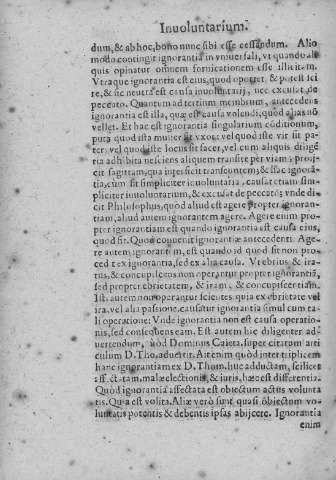 Inuoluntarium.
dum, & ab hoc, bono nunc sibi esse cessandum. Alio
modo contingit ignorantia in vniuersali, vt quando ali
quis opinatur omnem fornicationem esse illicitam.
Vtraque ignorantia est eius, quod oportet, & potest sci
re, & sic neutra est causa inuoluntarij, nec excusat, de
peccato. Quantum ad tertium membrum, antecedens
ignorantia est illa, quæ est causa volendi, quod aliàs nõ
vellet. Et hæc est ignorantia singularium cõditionum,
puta quòd ista mulier sit vxor, vel quòd iste vir sit pa
ter: vel quòd iste locus sit sacer, vel cum aliquis diligẽ
tia adhibita nesciens aliquem transire per viam: proij-
cit sagittam, qua interficit transeuntem; & istæc ignorã
tia, cum sit simpliciter inuoluntaria, causat etiam sim-
pliciter inuoluntarium, & excusat de peccato: vnde di-
cit Philosophus, quòd aliud est agere propter ignoran-
tiam, aliud autem ignorantem agere. Agere enim pro-
pter ignorantiam est quando ignorantia est causa eius,
quod sit. Quod conuenit ignorantiæ antecedenti. Age-
re autem ignorantem, est quando id quod sit non pro-
ced t ex ignorantia, sed ex alia causa. Vt ebrius & ira-
tus, & concupiscens non operantur propter ignorantiã,
sed propter ebrietatem, & iram, & concupiscentiam.
Ist. autem non operantur scientes quia ex ebrietate vel
ira. vel alia passione, causatur ignorantia simul cum ta-
li operatione: Vnde ignorantia non est causa operatio-
nis, sed consequens eam. Est autem hic diligenter ad-
uertendum, quòd Dominus Caieta. super citatum arti
culum D. Tho. aduertit. Ait enim quòd inter triplicem
hanc ignorantiam ex D. Thom. huc adductam, scilicet
aff. ctatam, malæ electionis, & iuris, hæc est differentia.
Quòd ignorantia affectata est obiectum actus volunta
tis. Quia est volita. Aliæ verò sunt quasi obiectum vo-
luntatis potentis & debentis ipsas abijcere. Ignorantia
enim